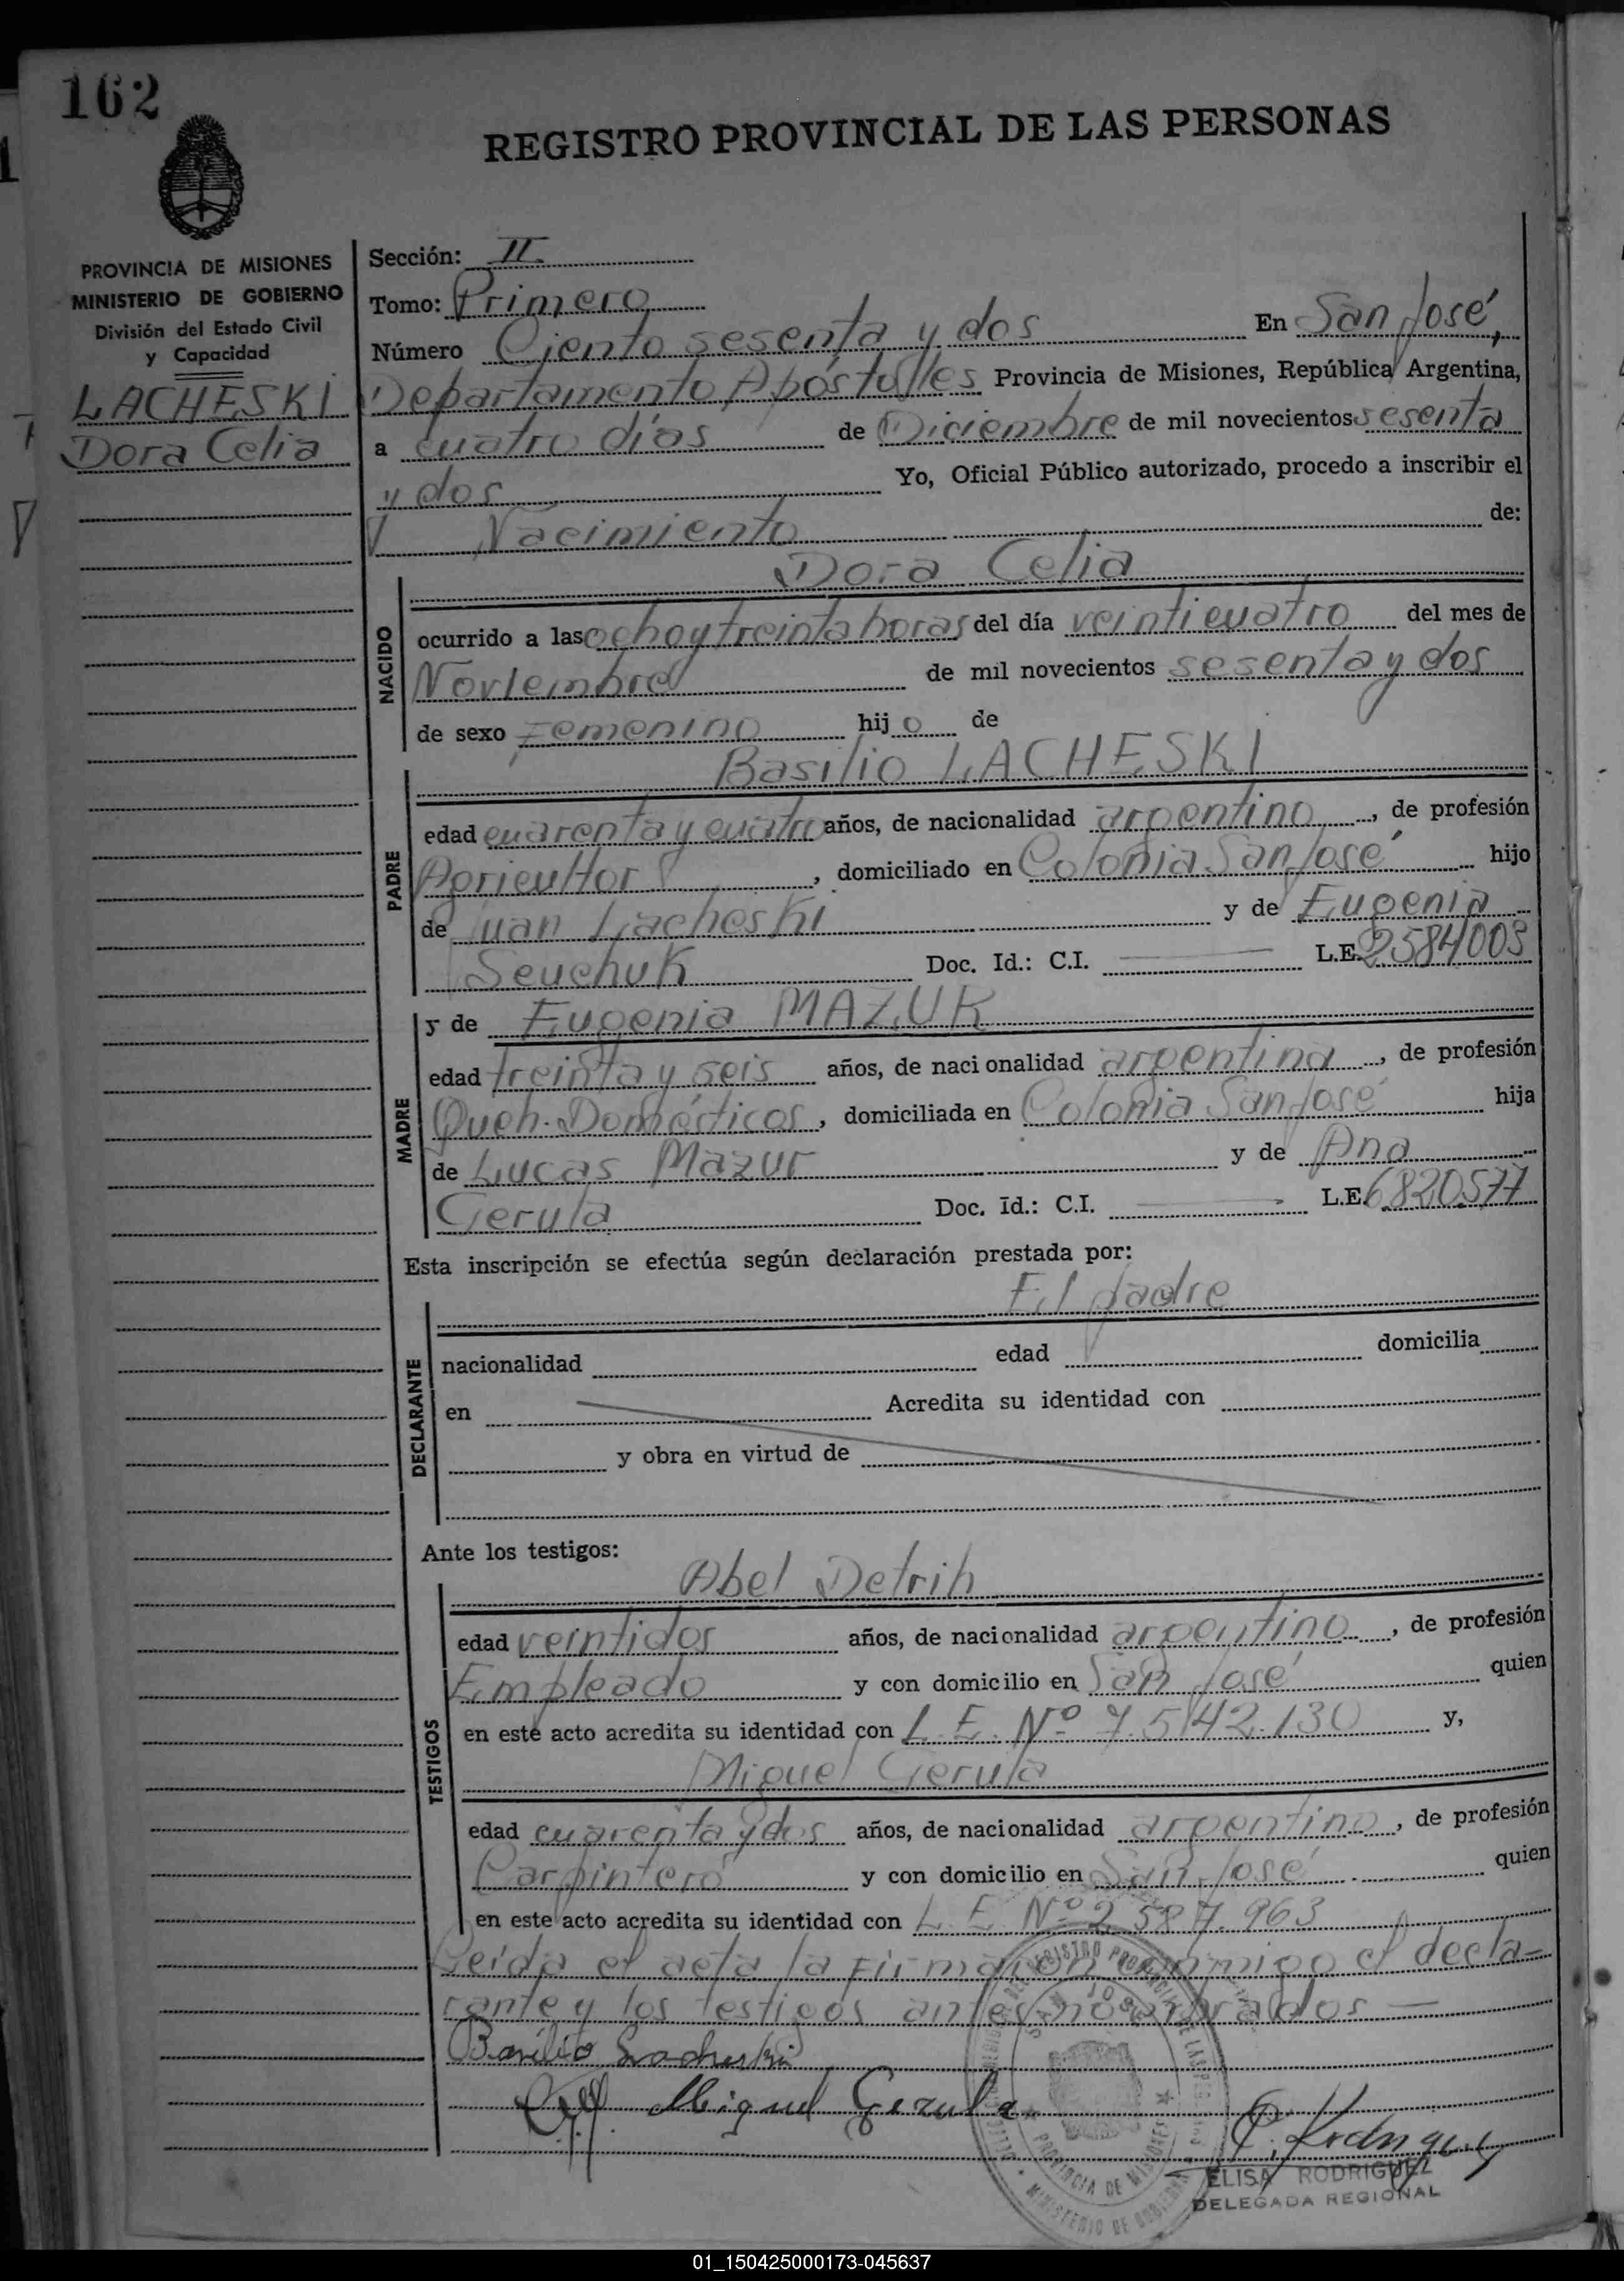 162
REGISTRO PROVINCIAL DE LAS PERSONAS
PROVINCIA DE MISIONES
MINISTERIO DE GOBIERNO
División del Estado Civil
y Capacidad
LACHESKI
Dora Celia
Sección: II.
Tomo: Primero
Número Ciento sesenta y dos En San José,
Departamento Apóstolles Provincia de Misiones, República Argentina,
a cuatro días de Diciembre de mil novecientos sesenta
y dos Yo, Oficial Público autorizado, procedo a inscribir el
Nacimiento de:
Dora Celia
NACIDO
ocurrido a las ocho y treinta horas del día veinticuatro del mes de
Noviembre de mil novecientos sesenta y dos
de sexo Femenino hijo de
Basilio LACHESKI
PADRE
edad cuarenta y cuatro años, de nacionalidad argentino, de profesión
Agricultor, domiciliado en Colonia San José hijo
de Juan Lacheski y de Eugenia
Seuchuk Doc. Id.: C.I. L.E. 2584003
y de Eugenia MAZUK
MADRE
edad treinta y seis años, de nacionalidad argentina, de profesión
Queh. Domésticos, domiciliada en Colonia San José hija
de Lucas Mazur y de Ana
Gerula Doc. Id.: C.I. L.E. 6820577
Esta inscripción se efectúa según declaración prestada por:
El padre
DECLARANTE
nacionalidad edad domicilia
en Acredita su identidad con
y obra en virtud de
Ante los testigos:
Abel Detrih
TESTIGOS
edad veintidos años, de nacionalidad argentino, de profesión
Empleado y con domicilio en San José quien
en este acto acredita su identidad con L.E. Nº 7.542.130 y,
Miguel Gerula
edad cuarenta y dos años, de nacionalidad argentino, de profesión
Carpintero y con domicilio en San José quien
en este acto acredita su identidad con L.E. Nº 2.587.963
Leida el acta la firmaron conmigo el decla-
rante y los testigos antes nombrados —
Basilio Lacheski
Miguel Gerula
ELISA RODRIGUEZ
DELEGADA REGIONAL
01_150425000173-045637